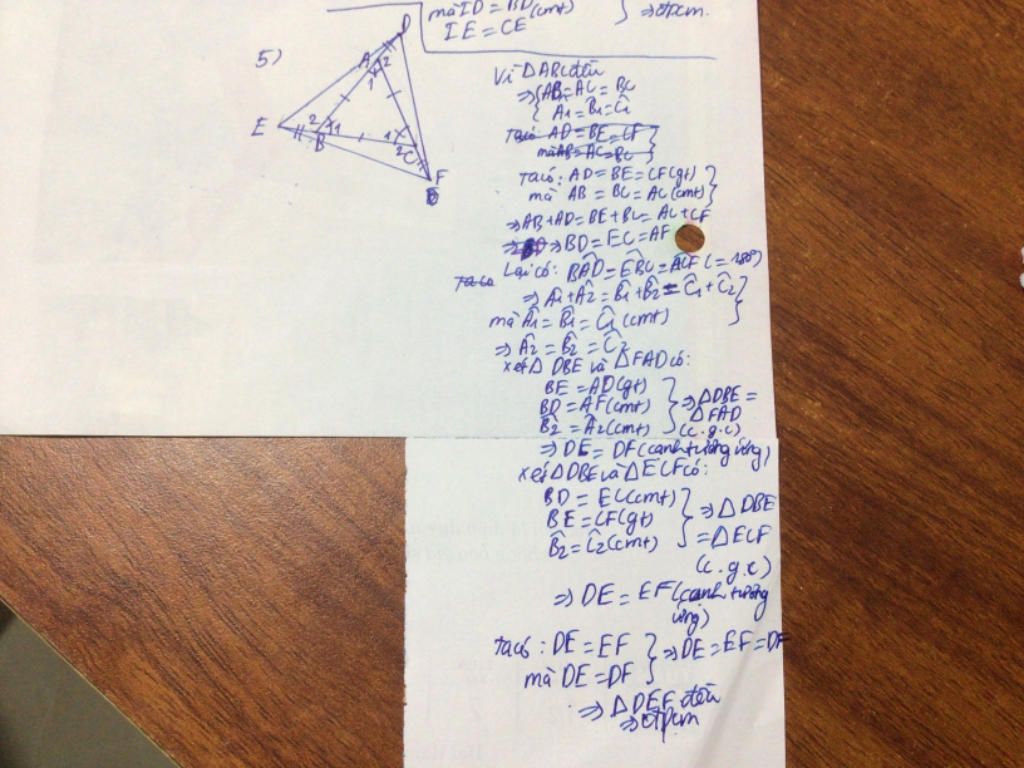 mà ID = BD (cmt) } ⇒ đpcm.
IE = CE
5)
D
A 2
1
E 2 1 1
B 2 C
F
Vì ΔABC đều
⇒ { AB = AC = BC
{ Â1 = B̂1 = Ĉ1
Ta có: AD = BE = CF }
mà AB = AC = BC }
Ta có: AD = BE = CF (gt) }
mà AB = BC = AC (cmt) }
⇒ AB + AD = BE + BC = AC + CF
⇒ BD = EC = AF
Ta có Lại có: BÂD = EB̂C = AĈF (= 180°)
⇒ Â1 + Â2 = B̂1 + B̂2 = Ĉ1 + Ĉ2 }
mà Â1 = B̂1 = Ĉ1 (cmt) }
⇒ Â2 = B̂2 = Ĉ2
Xét Δ DBE và Δ FAD có:
BE = AD (gt)
BD = AF (cmt) } ⇒ ΔDBE = ΔFAD
B̂2 = Â2 (cmt) (c.g.c)
⇒ DE = DF (cạnh tương ứng)
Xét ΔDBE và ΔECF có:
BD = EC (cmt)
BE = CF (gt) } ⇒ Δ DBE
B̂2 = Ĉ2 (cmt) = ΔECF
(c.g.c)
⇒ DE = EF (cạnh tương
ứng)
Ta có: DE = EF } ⇒ DE = EF = DF
mà DE = DF }
⇒ Δ DEF đều
⇒ đpcm